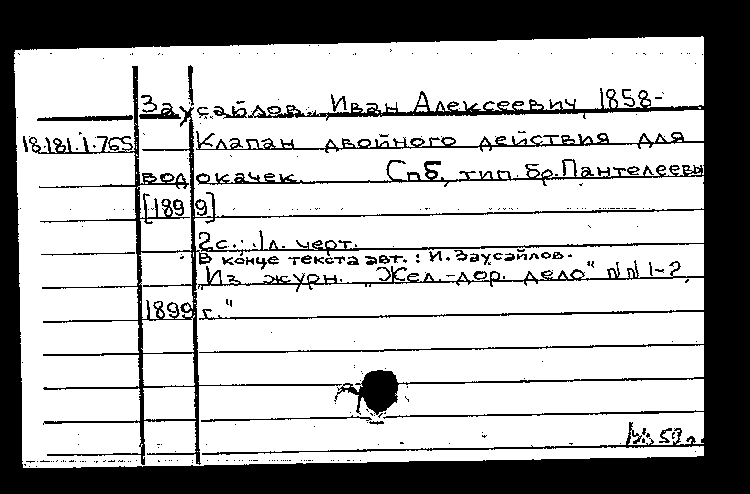 Заусайлов, Иван Алексеевич, 1858-
18.181.1.765 Клапан двойного действия для
водокачек. Спб, тип. бр. Пантелеевы
[1899].
2с., 1л. черт.
В конце текста авт.: И. Заусайлов.
"Из журн. "Жел.-дор. дело" №№ 1-2,
1899 г."